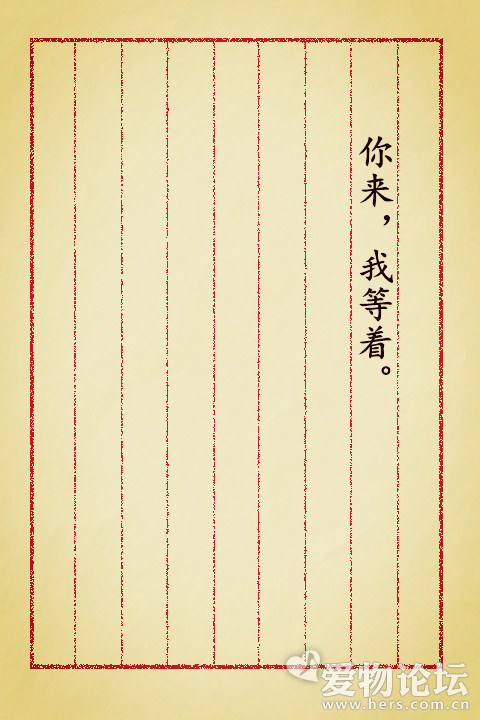 你来，我等着。
爱物论坛
www.hers.com.cn